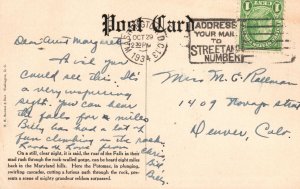 Post Card
WASHINGTON, D.C.
OCT 29
12 30 PM
1934
ADDRESS
YOUR MAIL
TO
STREET AND
NUMBER
1
Dear Aunt Margaret
I wish you
could see this. It's
a very inspiring
sight. You can hear
the falls for a miles
Billy has had a lot of
fun climbing on the rocks.
Love
Billy
Miss M. G.
1409
Denver, Colo.
On a still, clear night, it is said, the roar of the Falls in their
mad rush through the rock walled gorge, can be heard eight miles
back in the Maryland hills. Here the Potomac, in plunging,
swirling cascades, cutting a furious path through the rock, pre-
sents a scene of mighty grandeur seldom surpassed.